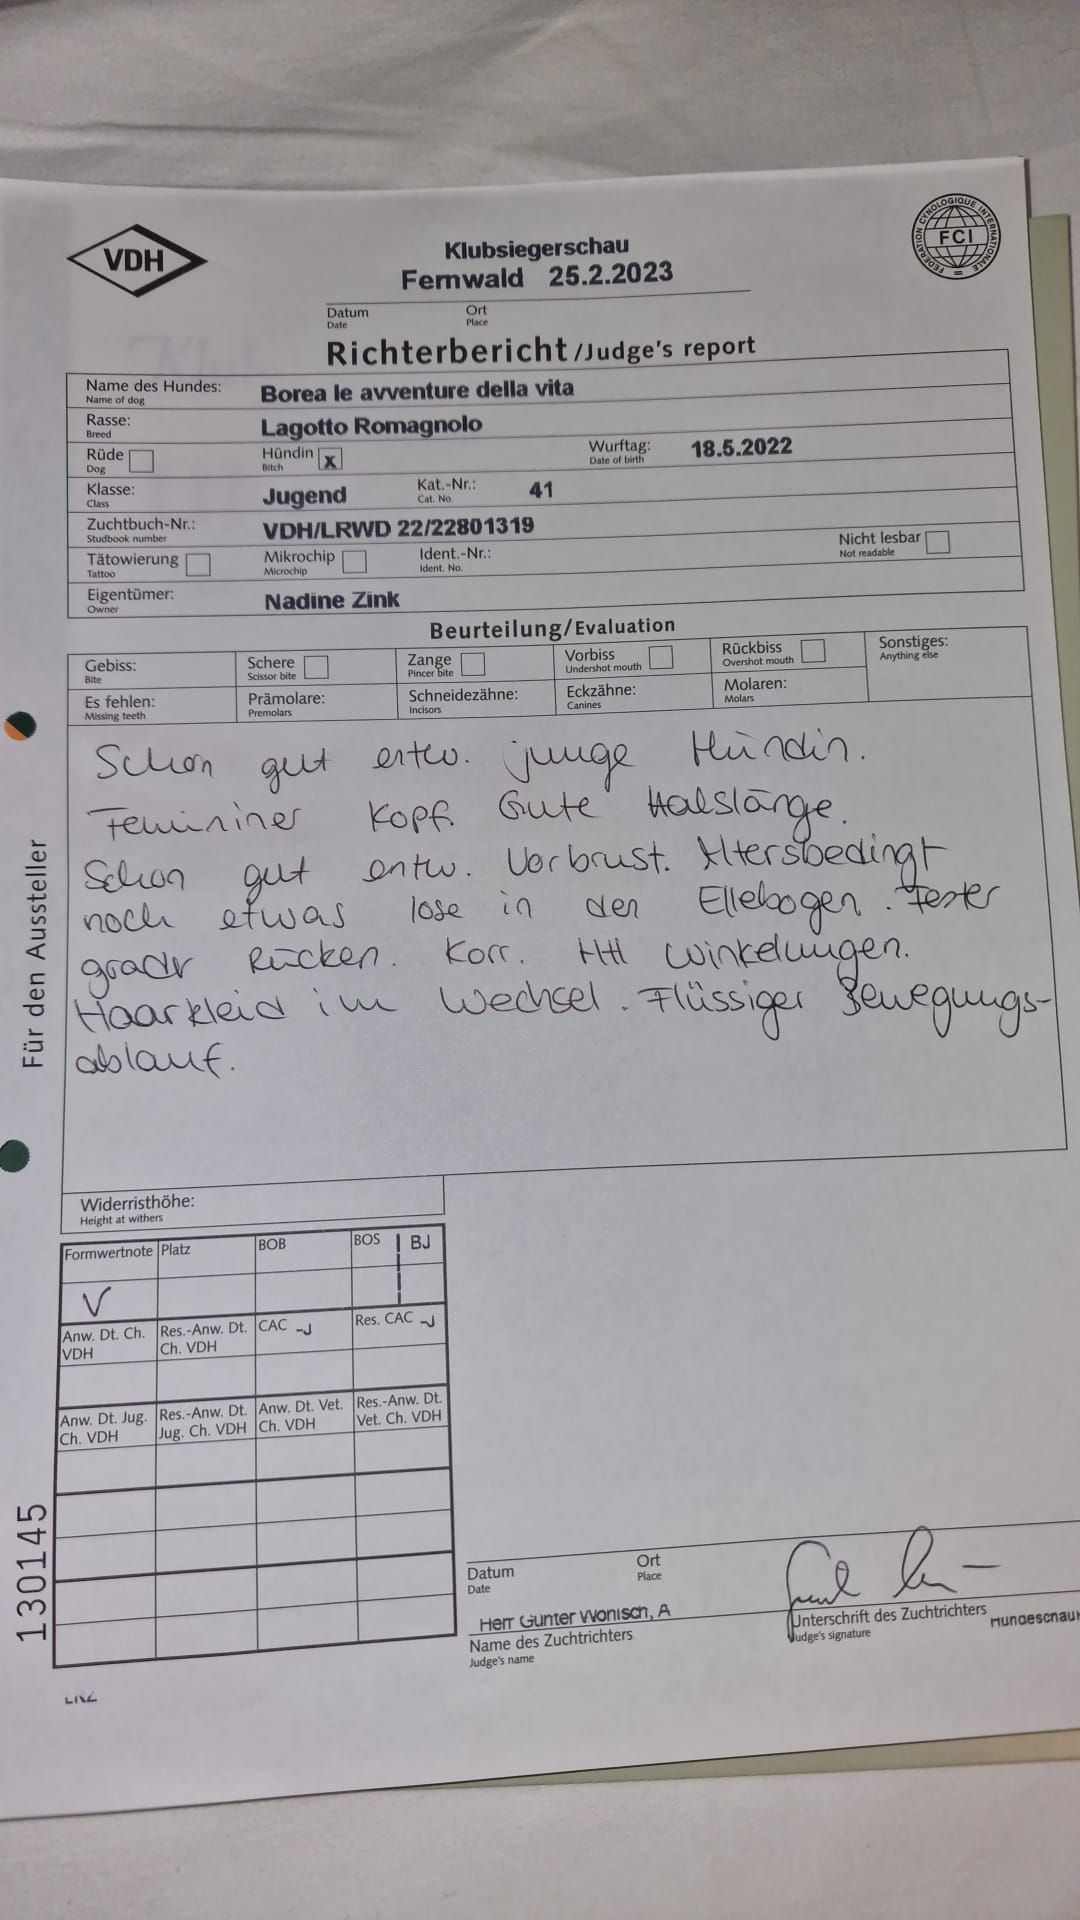 VDH
FEDERATION CYNOLOGIQUE INTERNATIONALE
FCI
Klubsiegerschau
Fernwald 25.2.2023
Datum Ort
Date Place
Richterbericht/Judge's report
Name des Hundes: Borea le avventure della vita
Name of dog
Rasse: Lagotto Romagnolo
Breed
Rüde Hündin x Wurftag: 18.5.2022
Dog Bitch Date of birth
Klasse: Jugend Kat.-Nr.: 41
Class Cat. No.
Zuchtbuch-Nr.: VDH/LRWD 22/22801319
Studbook number
Tätowierung Mikrochip Ident.-Nr.: Nicht lesbar
Tattoo Microchip Ident. No. Not readable
Eigentümer: Nadine Zink
Owner
Beurteilung/Evaluation
Gebiss: Schere Zange Vorbiss Rückbiss Sonstiges:
Bite Scissor bite Pincer bite Undershot mouth Overshot mouth Anything else
Es fehlen: Prämolare: Schneidezähne: Eckzähne: Molaren:
Missing teeth Premolars Incisors Canines Molars
Schon gut entw. junge Hündin.
Femininer Kopf. Gute Halslänge.
Schon gut entw. Vorbrust. Altersbedingt
noch etwas lose in den Ellebogen. Fester
grader Rücken. Korr. HH Winkelungen.
Haarkleid im Wechsel. Flüssiger Bewegungs-
ablauf.
Für den Aussteller
Widerristhöhe:
Height at withers
Formwertnote Platz BOB BOS BJ
V
Anw. Dt. Ch. VDH Res.-Anw. Dt. Ch. VDH CAC -J Res. CAC -J
Anw. Dt. Jug. Ch. VDH Res.-Anw. Dt. Jug. Ch. VDH Anw. Dt. Vet. Ch. VDH Res.-Anw. Dt. Vet. Ch. VDH
130145
Datum Ort
Date Place
Herr Günter Wonisch, A
Name des Zuchtrichters Unterschrift des Zuchtrichters
Judge's name Judge's signature